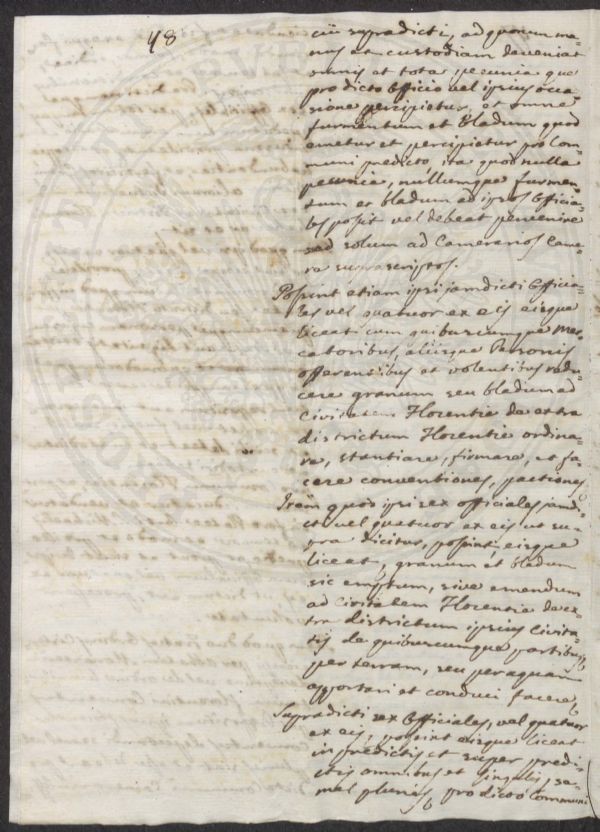 48
cii supradicti, ad quorum ma-
nus et custodiam deveniat
omnis et tota pecunia que
pro dicto Officio vel ipsius occa-
sione percipietur, et omne
furmentum et bladum quod
emetur et percipietur pro Com-
muni predicto, ita quod nulla
pecunia, nullumque furmen-
tum et bladum ad ipsos Officia-
les possit vel debeat pervenire
sed solum ad Camerarios Came-
re suprascriptos.
Possint etiam ipsi jamdicti Officia-
les vel quatuor ex eis eisque
liceat cum quibuscumque Mer-
catoribus, aliisque Personis
offerentibus et volentibus redu-
cere granum seu bladum ad
Civitatem Florentie de extra
districtum Florentie ordina-
re, stantiare, firmare, et fa-
cere conventiones, pactiones
Item quod ipsi sex officiales jamdi-
cti vel quatuor ex eis ut su-
pra dicitur, possint eisque
liceat, granum et bladum
sic emptum, sive emendum
ad Civitatem Florentie de ex-
tra districtum ipsius Civita-
tis de quibuscumque partibus
per terram, seu per aquam
apportari et conduci facere
Supradicti sex Officiales, vel quatuor
ex eis, possint eisque liceat
in predictis et super predi-
ctis omnibus et singulis, se-
mel pluries, pro dicto Communi